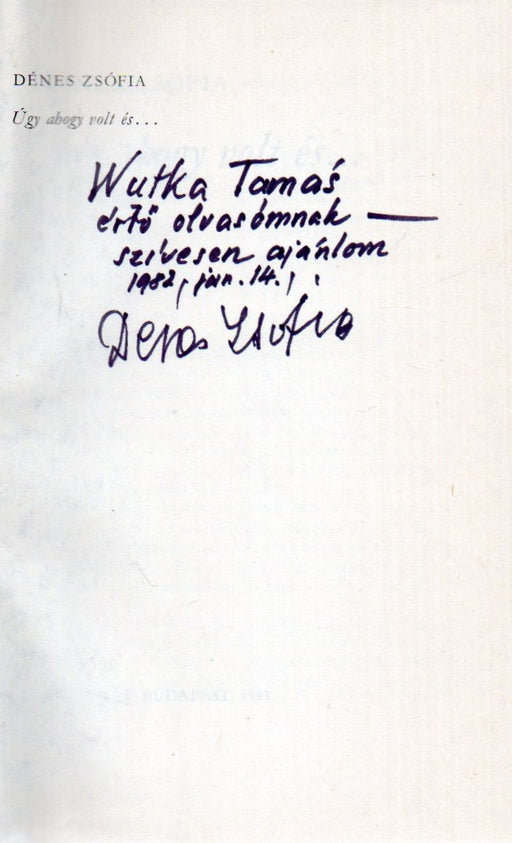 DÉNES ZSÓFIA
Úgy ahogy volt és...
Wutka Tamás
értő olvasómnak —
szívesen ajánlom
1982, jan. 14.,
Dénes Zsófia
BUDAPEST, 1981